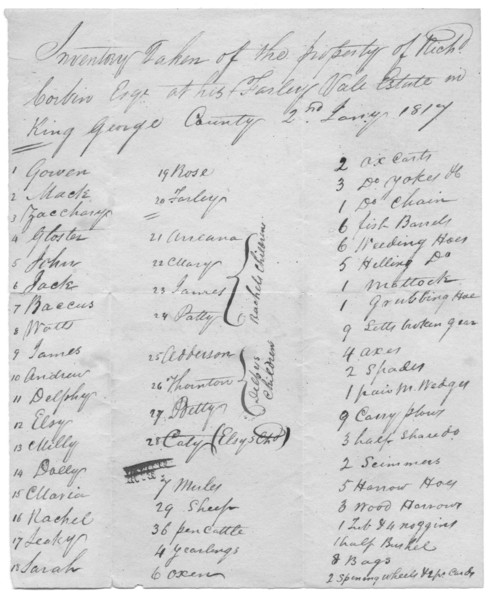 Inventory Taken of the property of Richd
Corbin Esqr at his Farley Vale Estate in
King George County 2nd Jany 1817
1 Gowen
2 Mack
3 Zacchary
4 Gloster
5 John
6 Jack
7 Baccus
8 Watts
9 James
10 Andrew
11 Delphy
12 Elsy
13 Milly
14 Dolly
15 Maria
16 Rachel
17 Leaky
18 Sarah
19 Rose
20 Farley
21 Anicana
22 Mary
23 James
24 Patty
Rachels Children
25 Adderson
26 Thornton
27 Betty
Delpys Children
28 Caty (Elsys Chd)
7 Mules
29 Sheep
36 pen Cattle
4 yearlings
6 oxen
2 ox Carts
3 Do yokes &c
1 Do Chain
6 fish Barrels
6 Weeding Hoes
5 Hilling Do
1 mattock
1 Grubbing Hoe
9 Setts broken gear
4 axes
2 Spades
1 pair M. Wedges
9 Carry plows
3 half Share do
2 Scimmers
5 Harrow Hoes
3 Wood Harrows
1 Tub & 4 noggins
1 half Bushel
8 Bags
2 Spinning wheels & 2 pr Cards